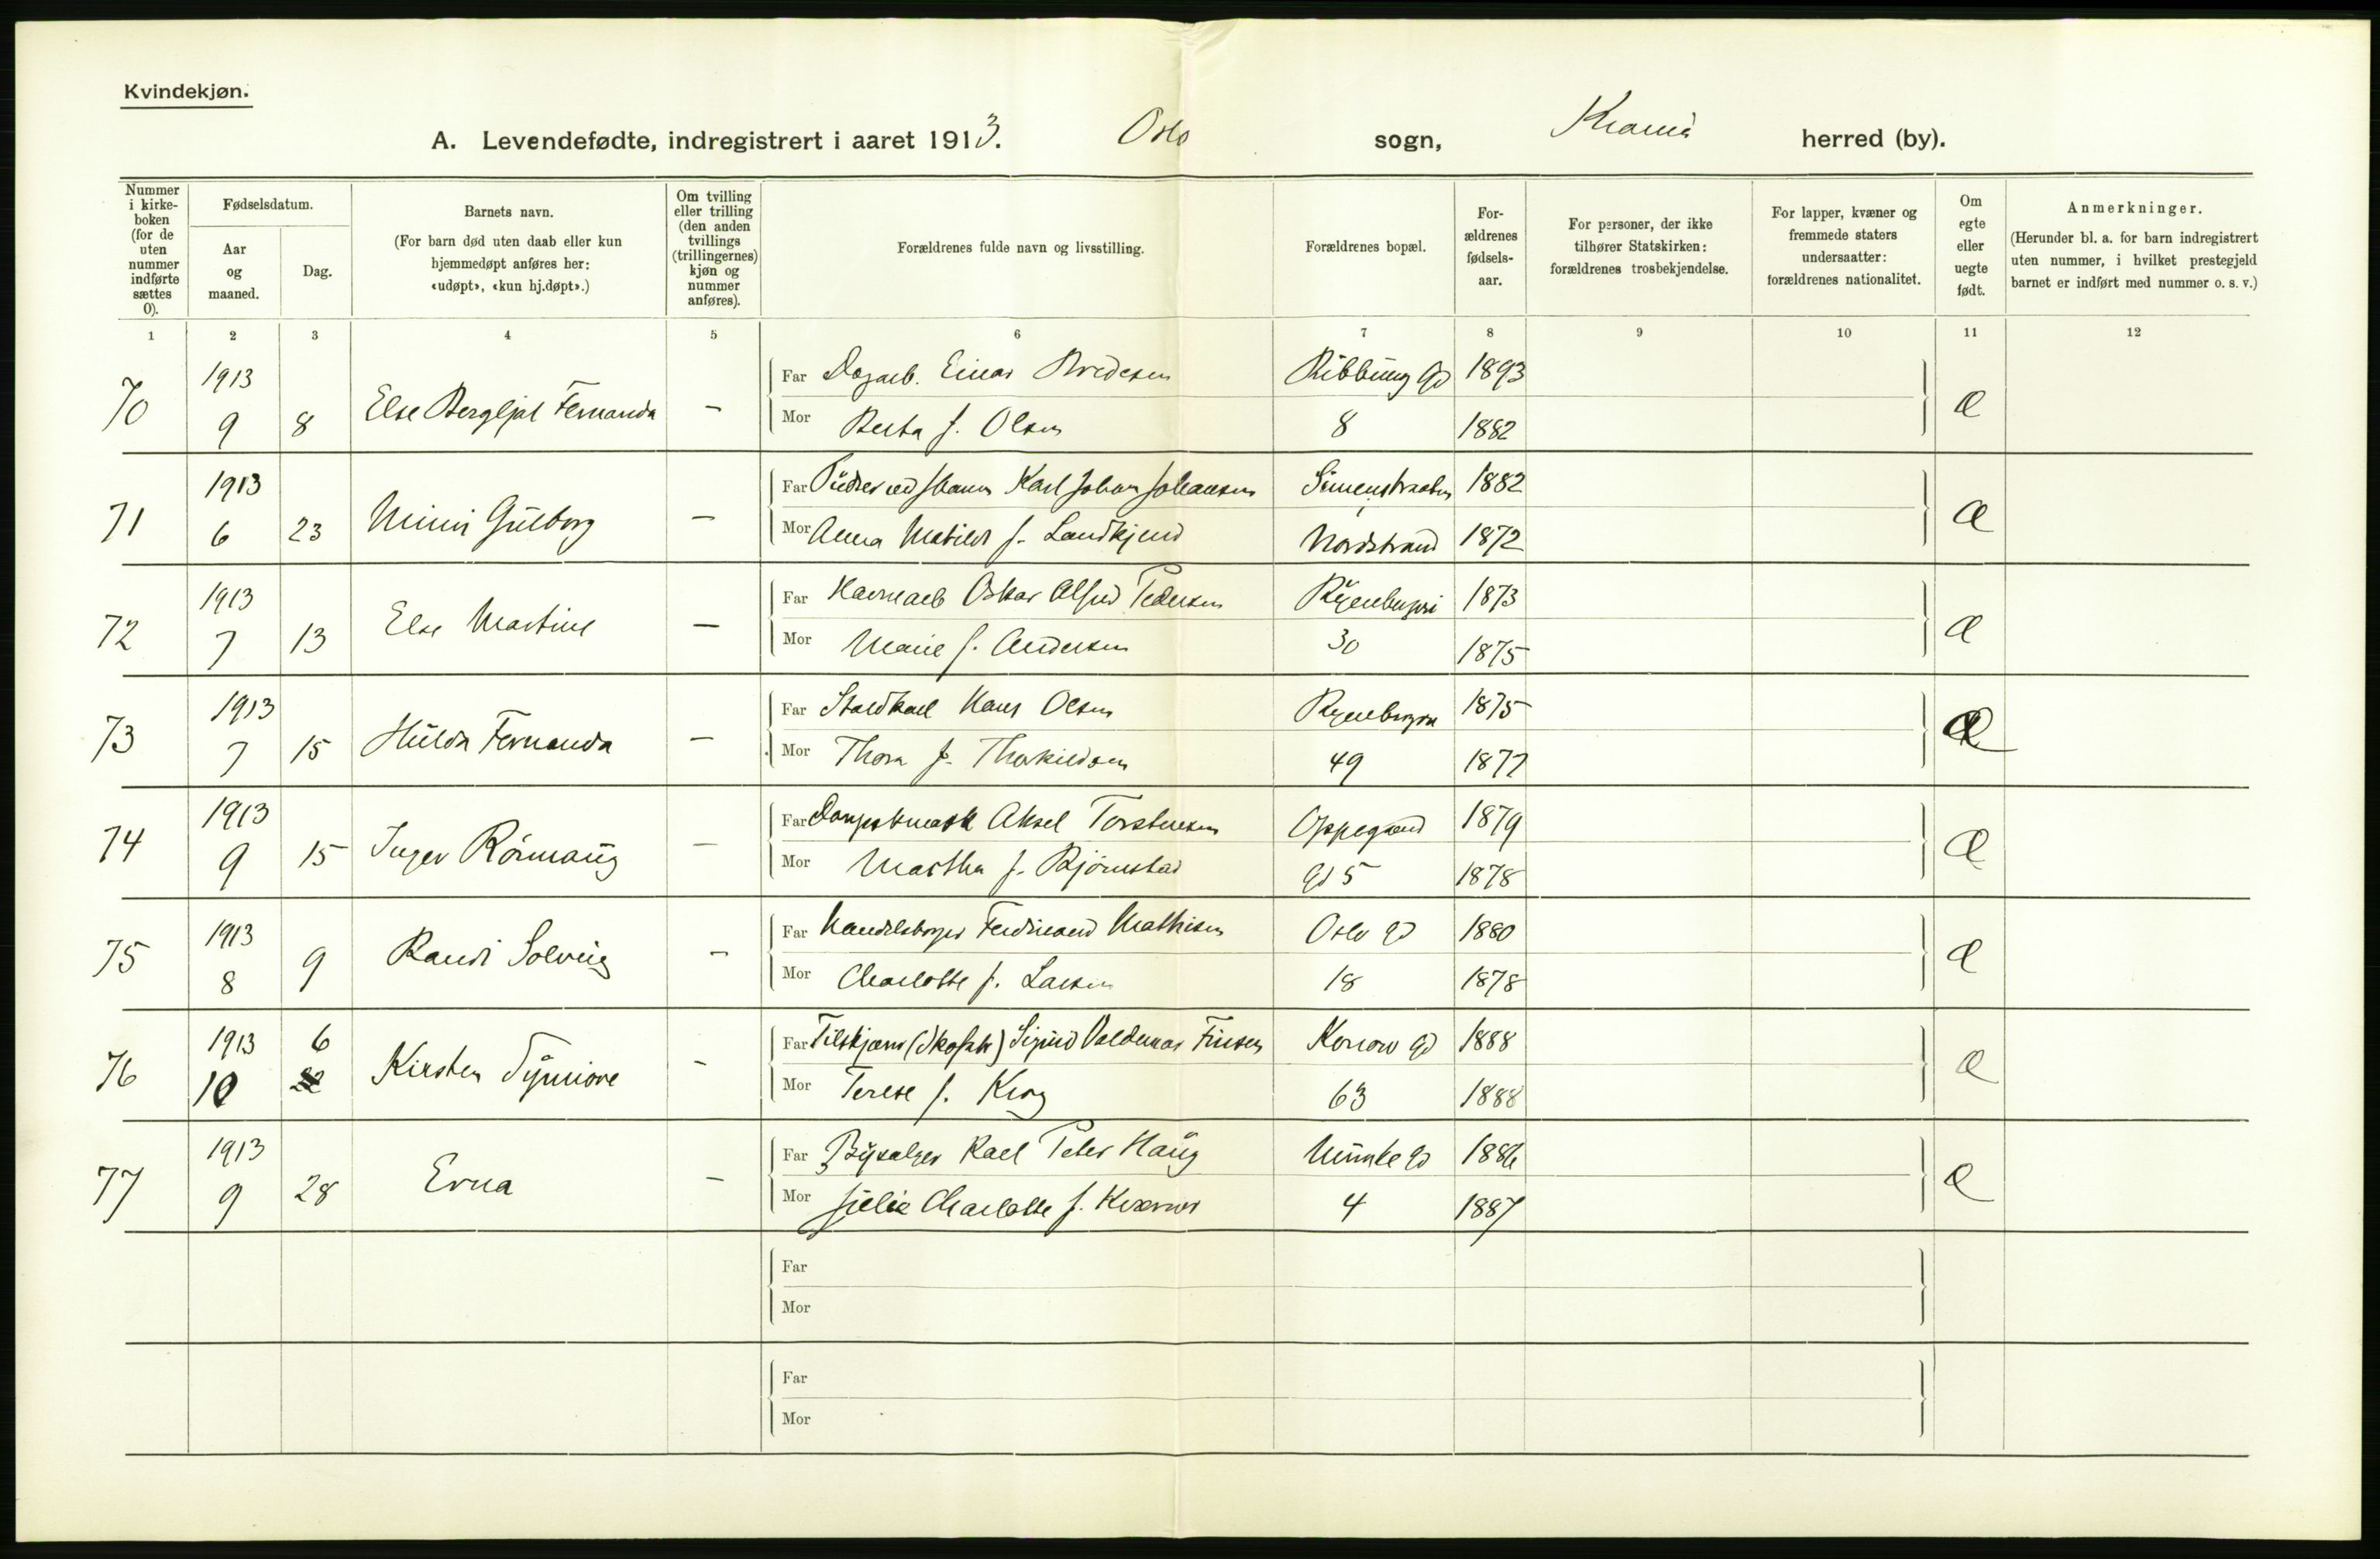 Kvindekjøn.
A. Levendefødte, indregistrert i aaret 1913. Oslo sogn, Krania herred (by).
Nummer i kirke-boken (for de uten nummer indførte sættes 0).
Fødselsdatum.
Aar og maaned.
Dag.
Barnets navn.
(For barn død uten daab eller kun hjemmedøpt anføres her: «udøpt», «kun hj.døpt».)
Om tvilling eller trilling (den anden tvillings (trillingernes) kjøn og nummer anføres).
Forældrenes fulde navn og livsstilling.
Forældrenes bopæl.
For-ældrenes fødsels-aar.
For personer, der ikke tilhører Statskirken: forældrenes trosbekjendelse.
For lapper, kvæner og fremmede staters undersaatter: forældrenes nationalitet.
Om egte eller uegte født.
Anmerkninger.
(Herunder bl. a. for barn indregistrert uten nummer, i hvilket prestegjeld barnet er indført med nummer o. s. v.)
1 2 3 4 5 6 7 8 9 10 11 12
1913 Far Dagarb. Einar Bredesen Ribbung Gd 1893
70 9 8 Else Bergljot Fernanda – Mor Berta f. Olsen 8 1882 Æ
1913 Far Karl Johan Johansen 1882
71 6 23 Mimi Gulborg – Mor Anna Matilde f. Sandkjend Nordstrand 1872 Æ
1913 Far Havnearb Oskar Alfred Pedersen Ryenbergvei 1873
72 7 13 Else Martine – Mor Marie f. Andersen 30 1875 Æ
1913 Far Staldkarl Hans Olsen Ryenbergvn 1875
73 7 15 Hulda Fernanda – Mor Thora f. Thorkildsen 49 1877 Æ
1913 Far Aksel Torstensen Oppegaard 1879
74 9 15 Inger Rönnaug – Mor Martha f. Björnstad Gd 5 1878 Æ
1913 Far Handelsborger Ferdinand Mathisen Oslo Gd 1880
75 8 9 Randi Solveig – Mor Charlotte f. Larsen 18 1878 Æ
1913 6 Far Tilskjærer (Skofabr) Sigurd Valdemar Finsen Konow Gd 1888
76 10 Kirsten Synnöve – Mor Terese f. Krog 63 1888 Æ
1913 Far Karl Peter Haug Munke Gd 1886
77 9 28 Erna – Mor Julie Charlotte f. Kværner 4 1887 Æ
Far
Mor
Far
Mor